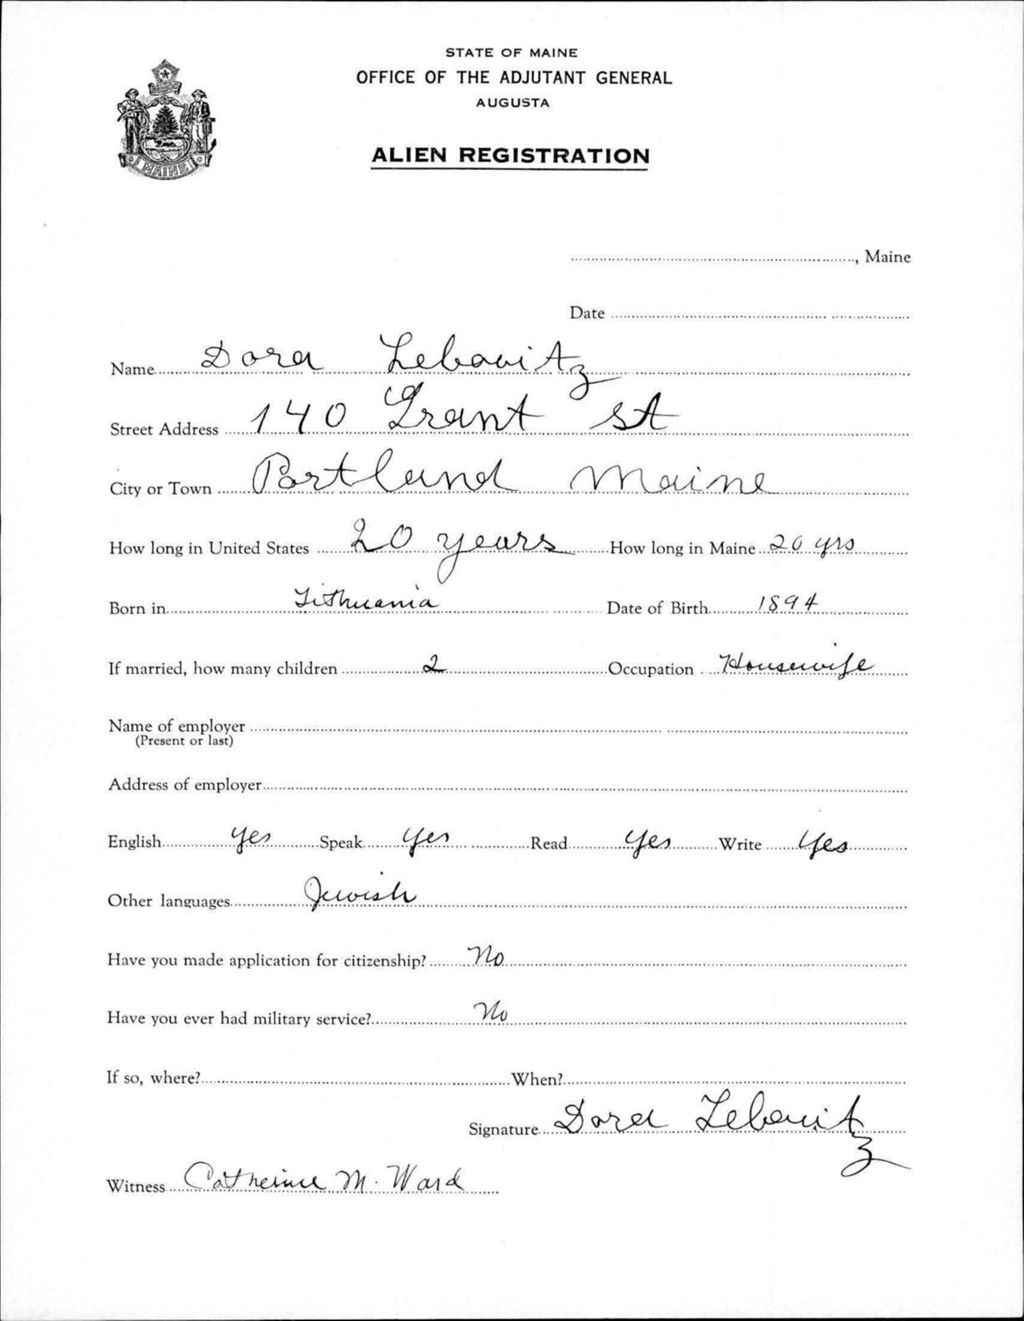 STATE OF MAINE
OFFICE OF THE ADJUTANT GENERAL
AUGUSTA
ALIEN REGISTRATION
MAINE
, Maine
Date
Name Dora Lebovitz
Street Address 140 Grant St
City or Town Portland Maine
How long in United States 20 years How long in Maine 20 yrs
Born in Lithuania Date of Birth 1894
If married, how many children 2 Occupation Housewife
Name of employer
(Present or last)
Address of employer
English Yes Speak Yes Read Yes Write Yes
Other languages Jewish
Have you made application for citizenship? No
Have you ever had military service? No
If so, where? When?
Signature Dora Lebovitz
Witness Catherine M. Ward